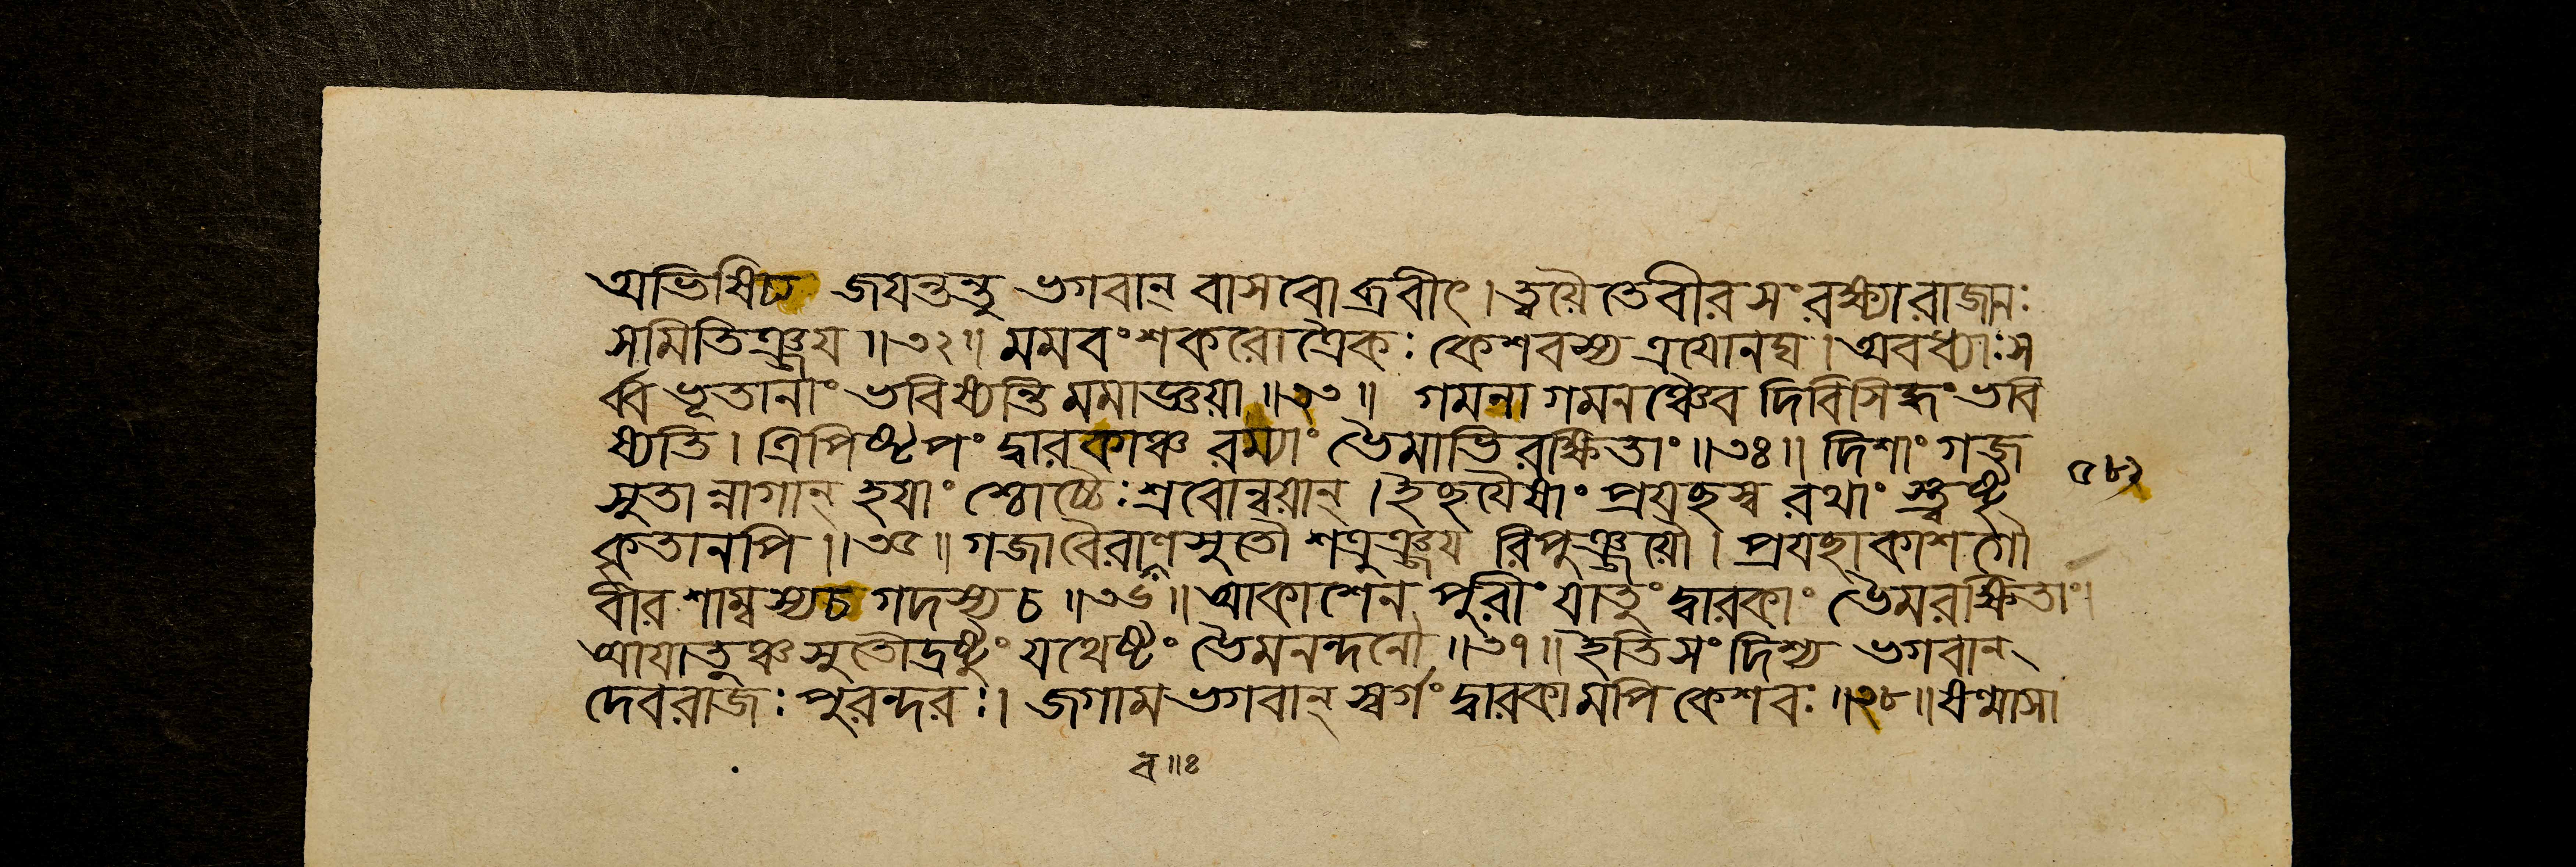 অভিষিচ্য জযন্তন্তু ভগবান্ বাসবো ব্রবীৎ। ত্বয়ৈতেবীর সংরক্ষ্যা রাজানঃ
সমিতিঞ্জয ॥৩২॥ মমবংশকরোত্রৈকঃ কেশবস্য ত্রযোনঘ। অবধ্যাঃ স
র্ব্ব ভূতানাং ভবিষ্যন্তি মমাজ্ঞয়া ॥৩৩॥ গমনা গমনঞ্চৈব দিবিসিদ্ধং ভবি
ষ্যতি। ত্রিপিষ্টপং দ্বারকাঞ্চ রম্যাং ভৈমাভি রক্ষিতাং ॥৩৪॥ দিশাং গজ
সুতা ন্নাগান্ হযাং শ্চোচ্চৈঃ শ্রবোন্বয়ান্। ইছযৈষাং প্রযছস্ব রথাং স্ত্বষ্টৃ
কৃতানপি ॥৩৫॥ গজাবৈরাণসুতৌ শত্রুঞ্জয রিপুঞ্জয়ৌ। প্রযছাকাশগৌ
র্বীর শাম্বস্যচ গদস্য চ ॥৩৬॥ আকাশেন পুরীং যাতুং দ্বারকাং ভৈমরক্ষিতাং।
আযাতুঞ্চ সুতৌদ্রষ্টুং যথেষ্টং ভৈমনন্দনৌ ॥৩৭॥ ইতিসংদিশ্য ভগবান্
দেবরাজঃ পুরন্দরঃ। জগাম ভগবান্ স্বর্গং দ্বারকামপি কেশবঃ ॥৩৮॥ ষণ্মাসা
ব॥ঃ